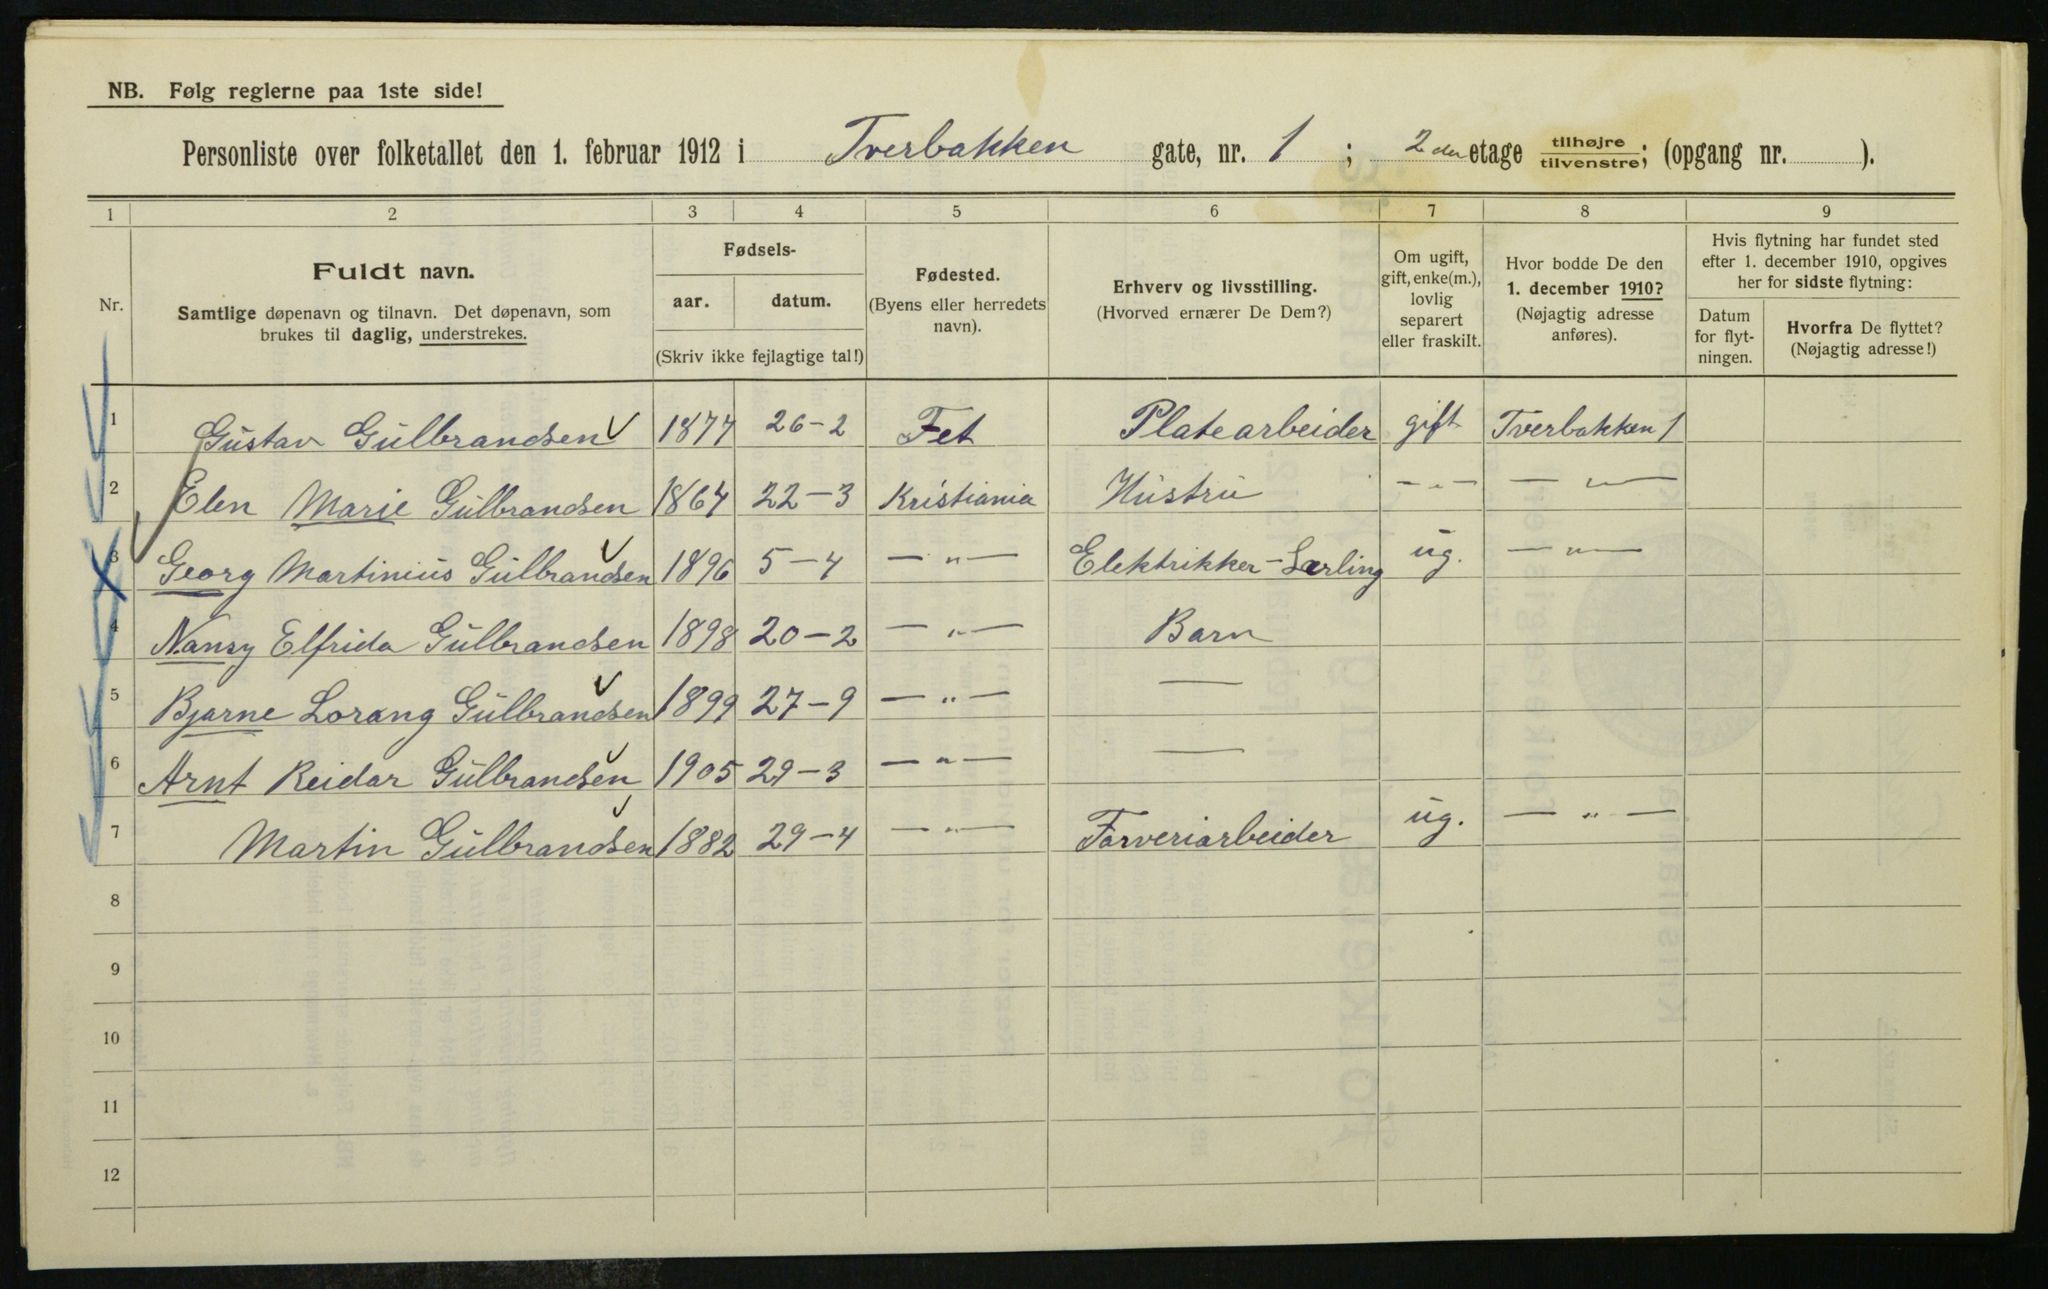 NB. Følg reglerne paa 1ste side!
Personliste over folketallet den 1. februar 1912 i Tverbakken gate, nr. 1 ; 2den etage tilhøjre tilvenstre; (opgang nr. ).
1 2 3 4 5 6 7 8 9
Nr.
Fuldt navn.
Samtlige døpenavn og tilnavn. Det døpenavn, som
brukes til daglig, understrekes.
Fødsels-
aar. datum.
(Skriv ikke fejlagtige tal!)
Fødested.
(Byens eller herredets
navn).
Erhverv og livsstilling.
(Hvorved ernærer De Dem?)
Om ugift,
gift, enke(m.),
lovlig
separert
eller fraskilt.
Hvor bodde De den
1. december 1910?
(Nøjagtig adresse
anføres).
Hvis flytning har fundet sted
efter 1. december 1910, opgives
her for sidste flytning:
Datum
for flyt-
ningen.
Hvorfra De flyttet?
(Nøjagtig adresse!)
1 Gustav Gulbrandsen 1877 26-2 Fet Platearbeider gift Tverbakken 1
2 Elen Marie Gulbrandsen 1864 22-3 Kristiania Hustru -"- -"-
3 Georg Martinius Gulbrandsen 1896 5-4 -"- Elektrikker-Lærling ug. -"-
4 Nansy Elfrida Gulbrandsen 1898 20-2 -"- Barn
5 Bjarne Lorang Gulbrandsen 1899 27-9 -"- —
6 Arnt Reidar Gulbrandsen 1905 29-3 -"- —
7 Martin Gulbrandsen 1882 29-4 -"- Farveriarbeider ug. -"-
8
9
10
11
12